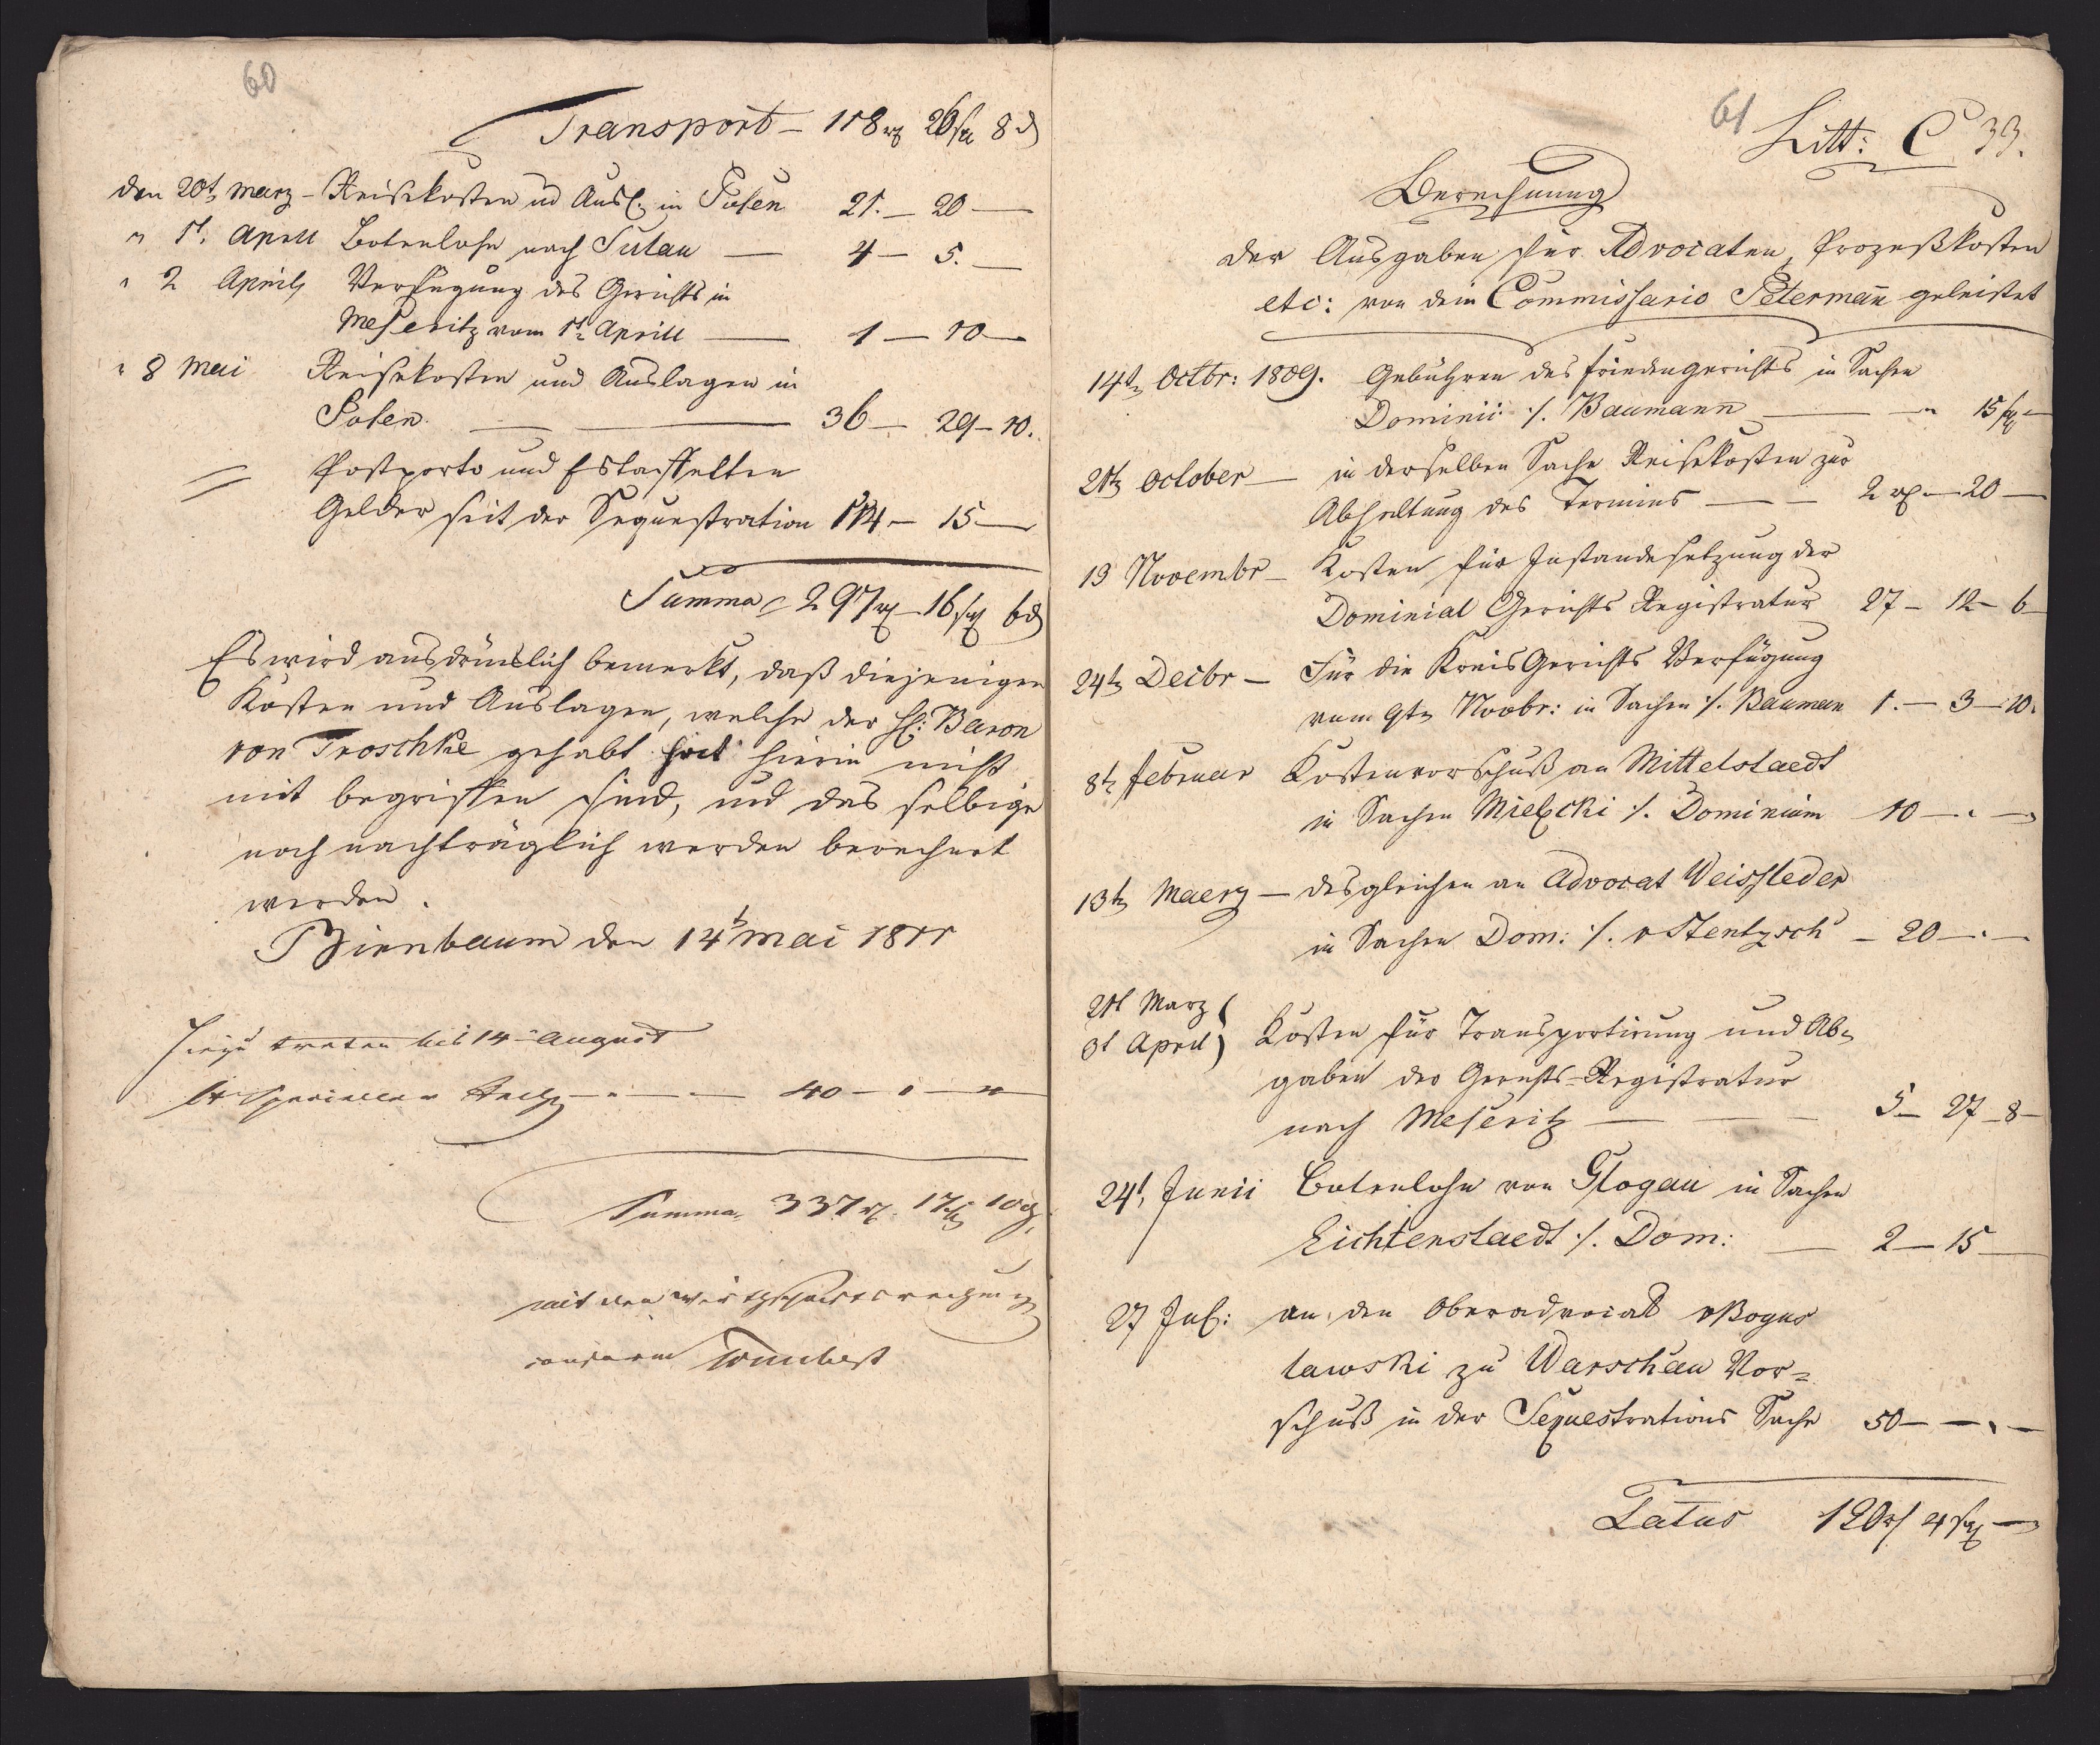 60
Transport – 118 rß 26 sg 8 d
den 20t Marz – Reisekosten ud Ausl. in Posen 21. – 20 –
" 1t. Aprill Botenlohn nach Sulau – 4 – 5. –
" 2 Aprill Verfügung des Gerichts in
Meseritz vom 1t Aprill – 1 – 10 –
" 8 Mai Reisekosten und Auslagen in
Posen. – 36 – 29 – 10.
Postporto und Estaffetten
Gelder seit der Sequestration 114 – 15 –
Summa 297 rß – 16 sg 6 d
Es wird ausdrücklich bemerkt, daß diejenigen
Kosten und Auslagen, welche der H: Baron
von Troschke gehabt hat hierin nicht
mit begriffen sind, und das selbige
noch nachträglich werden berechnet
werden.
Birnbaum den 14t Mai 1811
Hiezu treten bis 14 August
lt specieller 40 – " – "
Summa 337 rß. 17 sg 10 d.
mit den Wirthschaftsrechnung
conform
61
Litt: C 33.
Berechnung
der Ausgaben für Advocaten, Prozeßkosten
etc: von dem Commissario Petermañ geleistet
14t Octbr: 1809. Gebühren des Friedengerichts in Sachen
Dominii ./. Baumann – " 15 sg –
21t October – in derselben Sache Reisekosten zur
Abhaltung des Termins – 2 rß – 20 –
19 Novembr – Kosten für Instandesetzung der
Dominial Gerichts Registratur 27 – 12 – 6 –
24t Decbr – Für die KreisGerichts Verfügung
vom 9t Novbr: in Sachen ./. Bauman 1. – 3 – 10.
8t Februar Kostenvorschuß an Mittelstaedt
in Sachen Mielzcki ./. Dominium 10 – " –
13t Maerz – desgleichen an Advocat Weissleder
in Sachen Dom: ./. v Stentzsch – 20 – " –
21t Marz
3t April Kosten für Transportirung und Ab-
gaben der Gerichts-Registratur
nach Meseritz – 5 – 27 – 8 –
24t, Junii Botenlohn von Glogau in Sachen
Lichtenstaedt ./. Dom: – 2 – 15 –
27 Jul: an den Oberadvocat v Bogus
lawski zu Warschau Vor=
schuß in der Sequestrations Sache 50 – – " –
Latus 120 rß 4 sg –